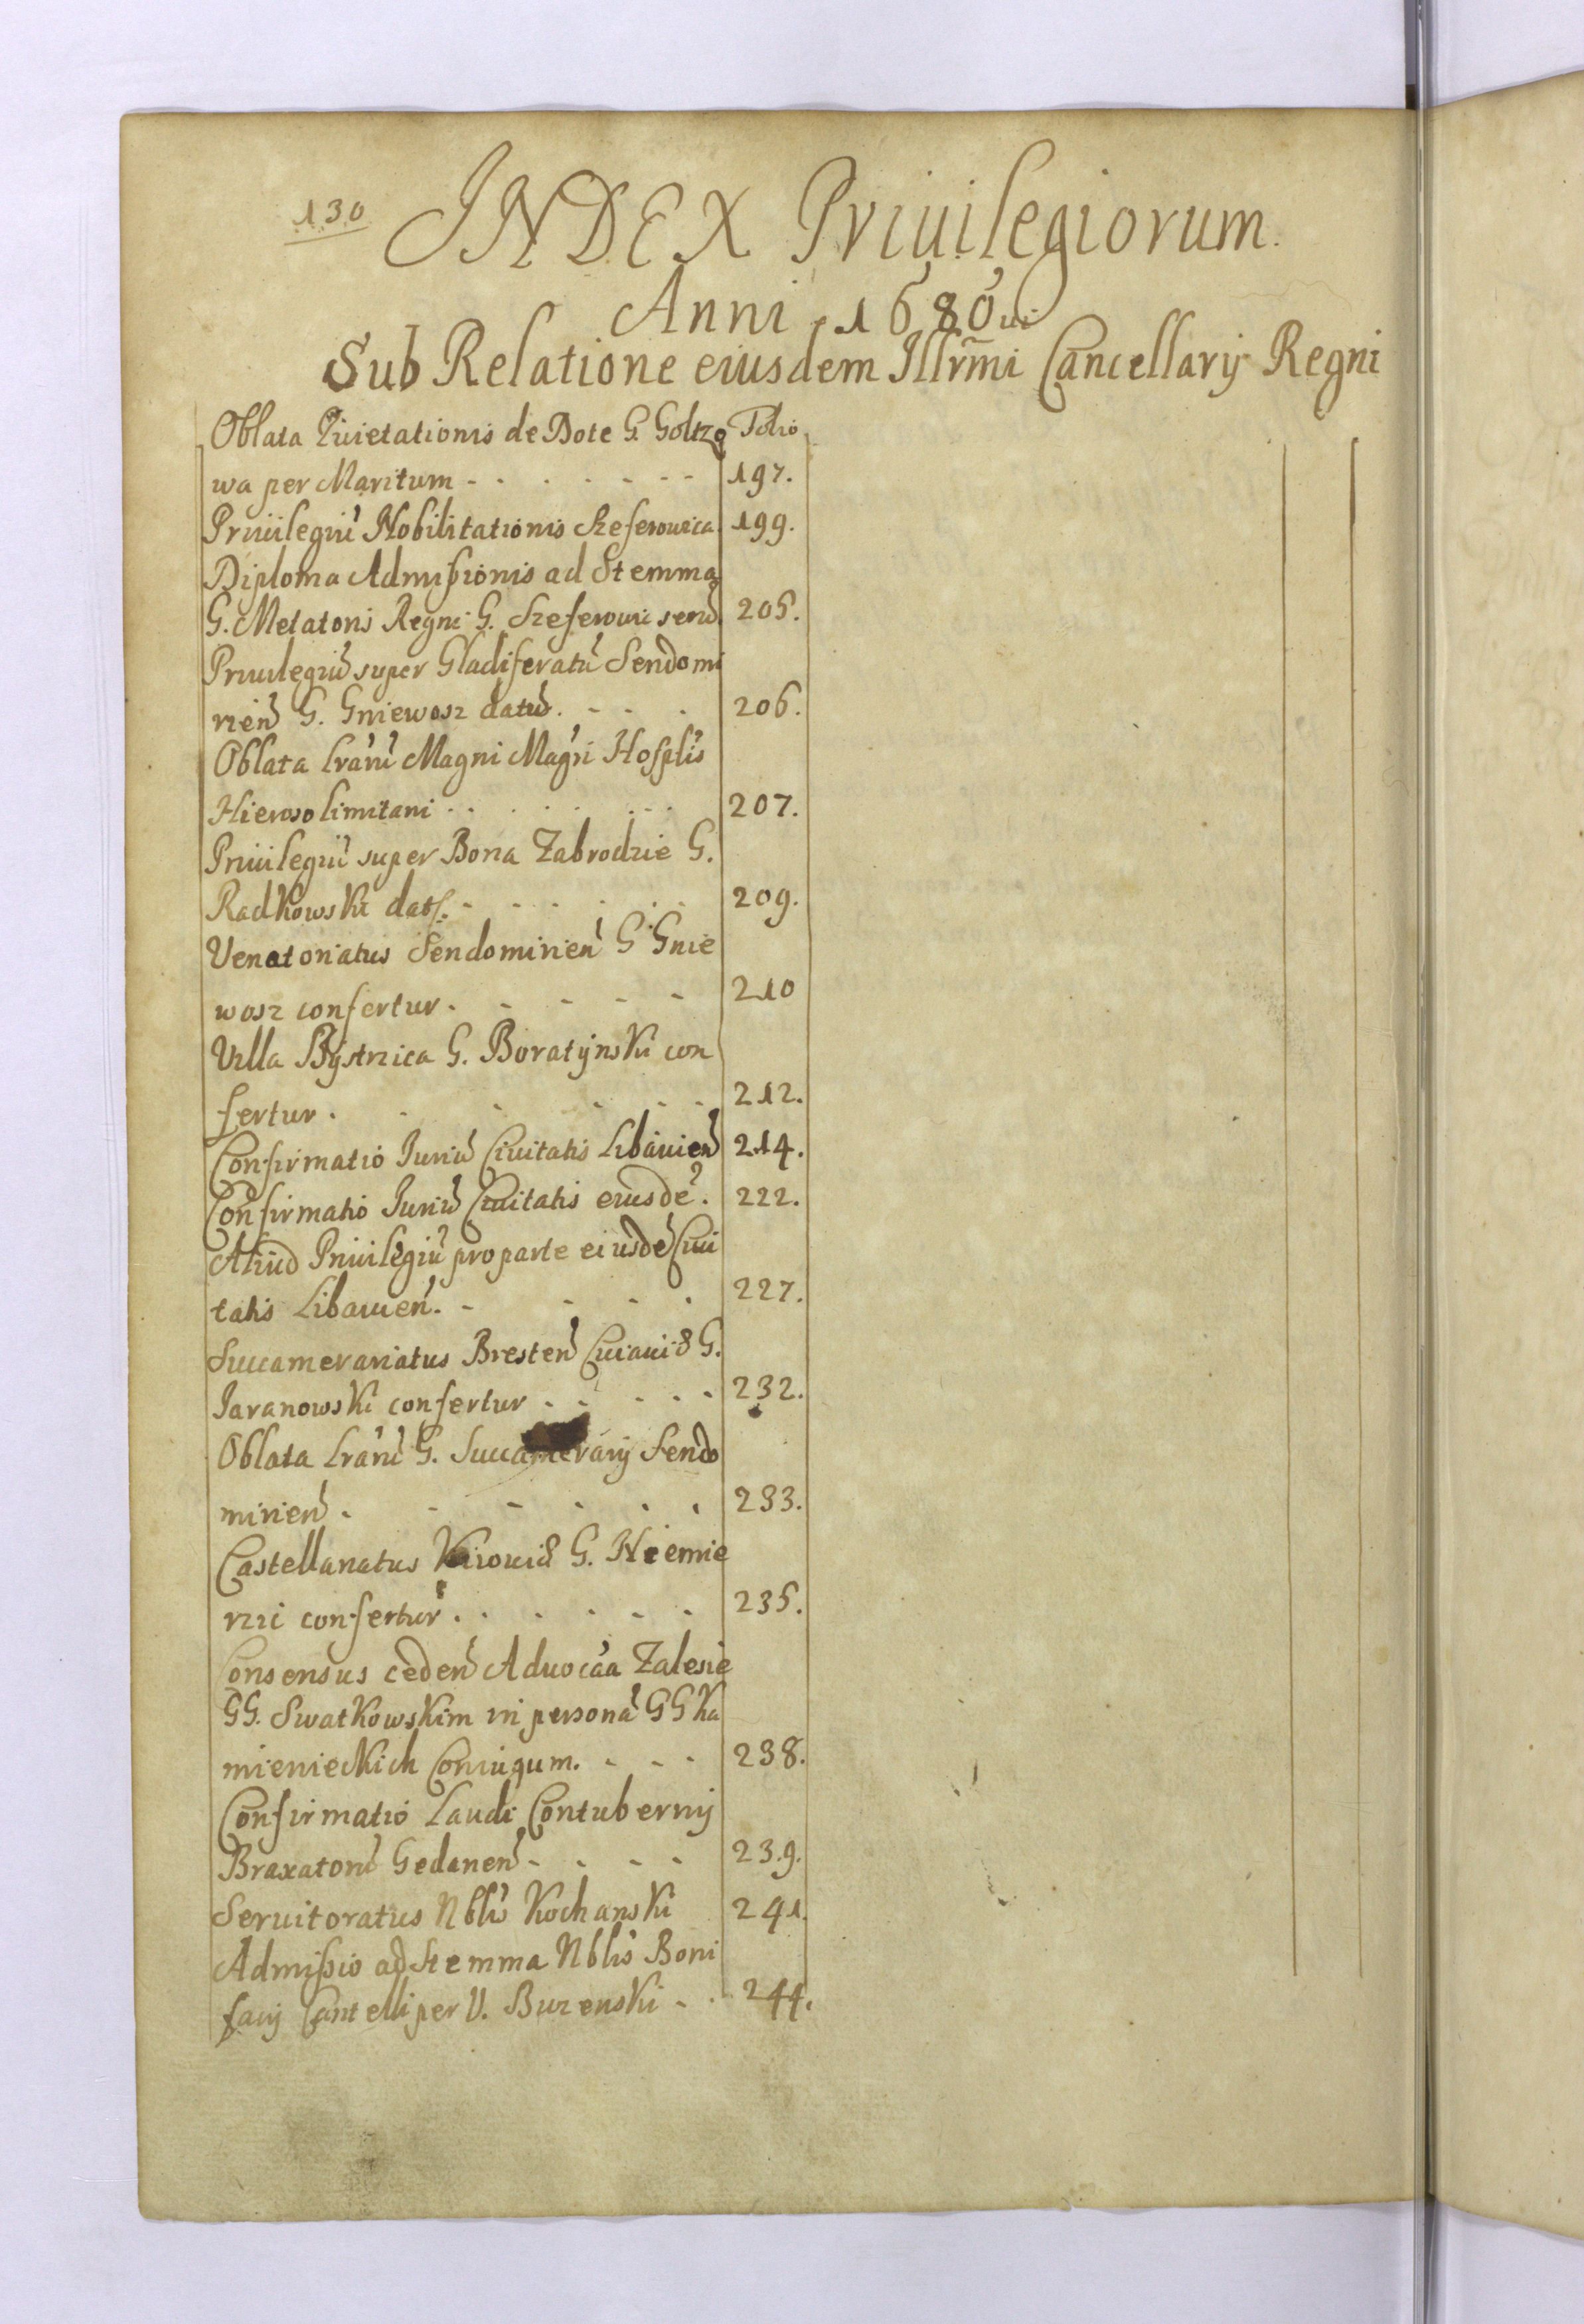 130
INDEX Priuilegiorum.
Anni 1680ui
Sub Relatione eiusdem Illrm̃i Cancellarij Regni
Oblata Quietationis de Dote G. Goltzo Folio
wa per Maritum - - - - - - - 197.
Priuilegiũ Nobilitationis Szeferowica 199.
Diploma Admissionis ad Stemma
G. Metatoris Regni G. Szeferowi serũ 205.
Priuilegiũ super Gladiferatũ Sendomi
rieñ G. Gniewosz datũ. - - . 206.
Oblata Lrarũ Magni Magri Hosplis
Hierosolimitani . . . . . . . 207.
Priuilegiũ super Bona Zabrodzie G.
Radkowski dat. - - - - . . 209.
Venatoriatus Sendomirieñ G Gnie
wosz confertur. - - - - 210
Villa Bystrzica G. Boratijnski con
fertur. - - - - - 212.
Confirmatio Juriũ Ciuitatis Libauieñ 214.
Confirmatio Juriũ Ciuitatis eiusdẽ. 222.
Aliud Priuilegiũ pro parte eiusdẽ Ciui
tatis Libauieñ. - - - . 227.
Succamerariatus Bresteñ Cuiauiȩ G.
Jaranowski confertur . - - - - 232.
Oblata Lrarũ G. Succamerarij Sendo
mirieñ. - - - - . 233.
Castellanatus Kiiouiȩ G. Niemie
rzic confertur. . . - - - 235.
Consensus cedeñ Aduocãa Zalesie
GG. Swatkowskim in personã GG Ka
mienieckich Coniugum. - - - 238.
Confirmatio Laudi Contubernij
Braxatorũ Gedaneñ - - - - 239.
Seruitoratus Nblis Kochanski 241.
Admissio ad Stemma Nblis Boni
facij Cantelli per V. Burzenski - . 244.